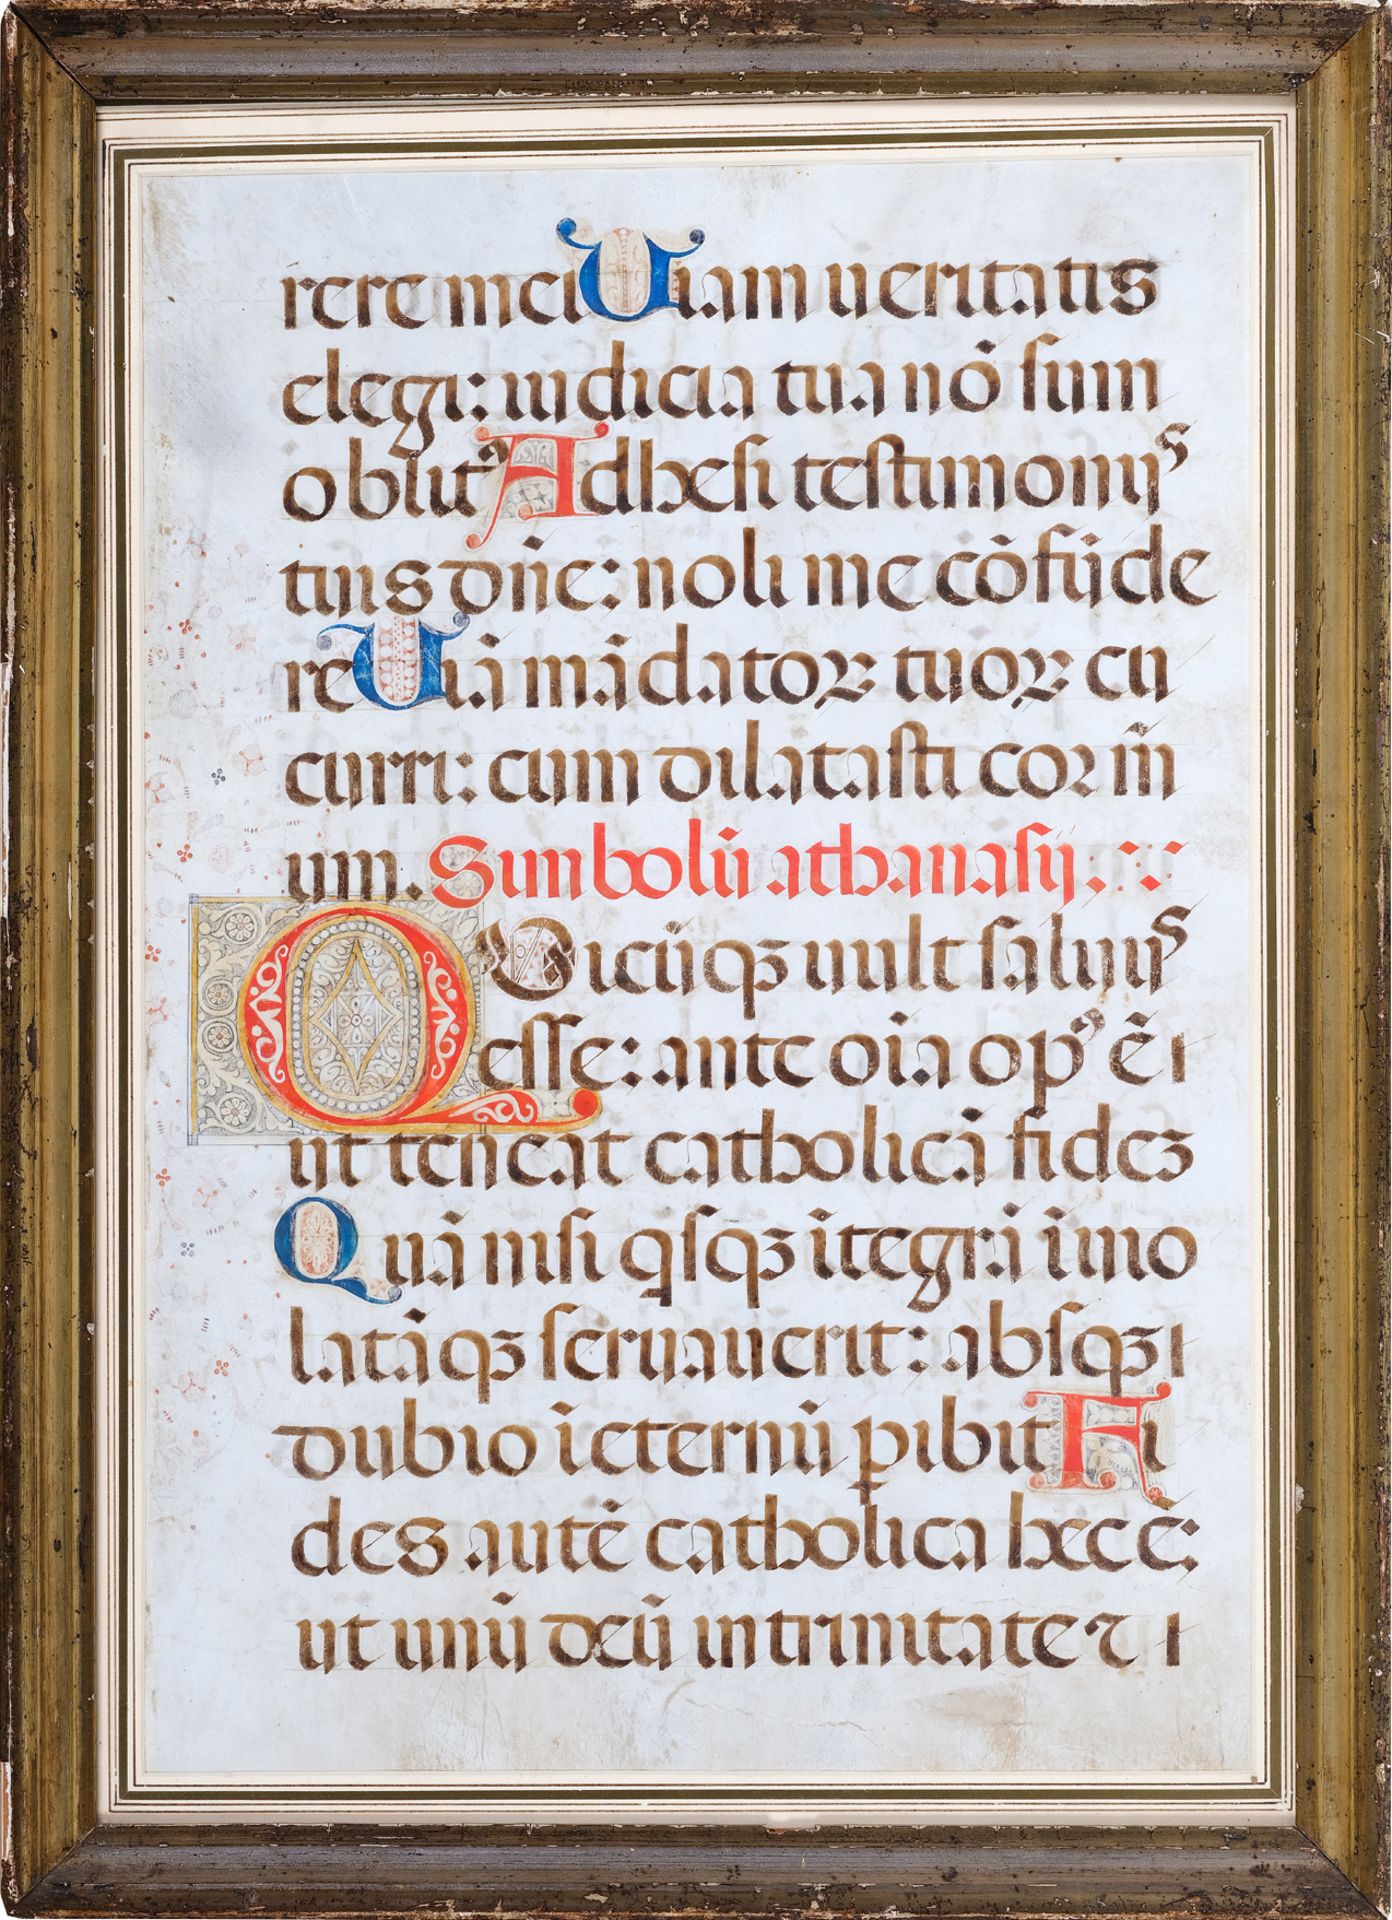 rere mei Uiam ueritatis
elegi: iudicia tua nō sum
oblitꝰ Adhesi testimoniis
tuis dn̄e: noli me cōfūde
re Uiā mādatoꝝ tuoꝝ cu
curri: cum dilatasti cor m̄
um. Simbolū athanasij.
QUicūqꝫ uult saluus
esse: ante oīa opꝰ ē
ut teneat catholicā fideꝫ
Quā nisi qͥsqꝫ ītegrā īuio
latāqꝫ seruauerit: absqꝫ
dubio ī eternū ꝑibit Fi
des autē catholica hec ē:
ut unū deū in trinitate ⁊